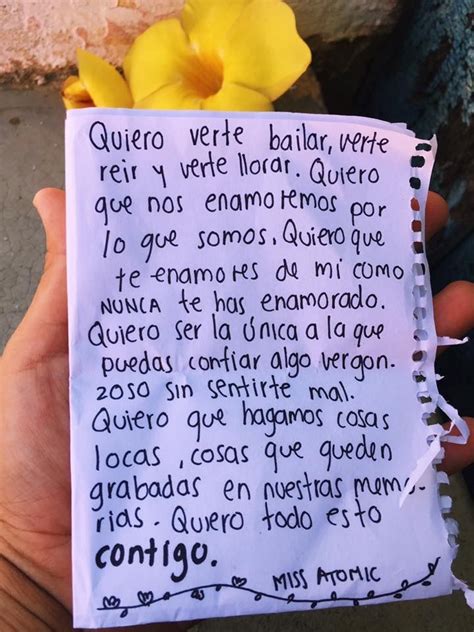 Quiero verte bailar, verte
reir y verte llorar. Quiero
que nos enamoremos por
lo que somos. Quiero que
te enamores de mi como
NUNCA te has enamorado.
Quiero ser la única a la que
puedas confiar algo vergon-
zoso sin sentirte mal.
Quiero que hagamos cosas
locas, cosas que queden
grabadas en nuestras memo-
rias. Quiero todo esto
contigo.
MISS ATOMIC